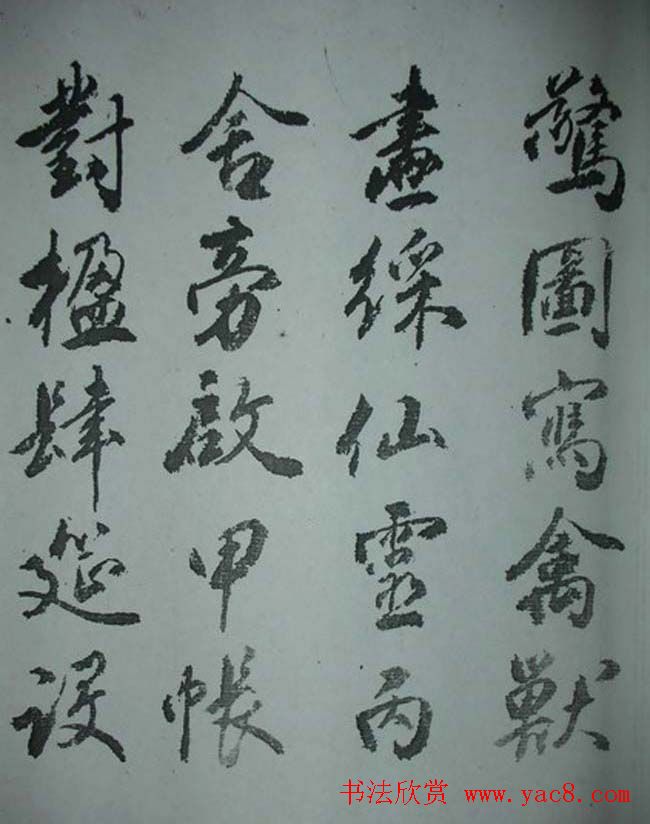 驚圖寫禽獸
畫綵仙靈丙
舍旁啟甲帳
對楹肆筵設
书法欣赏 www.yac8.com